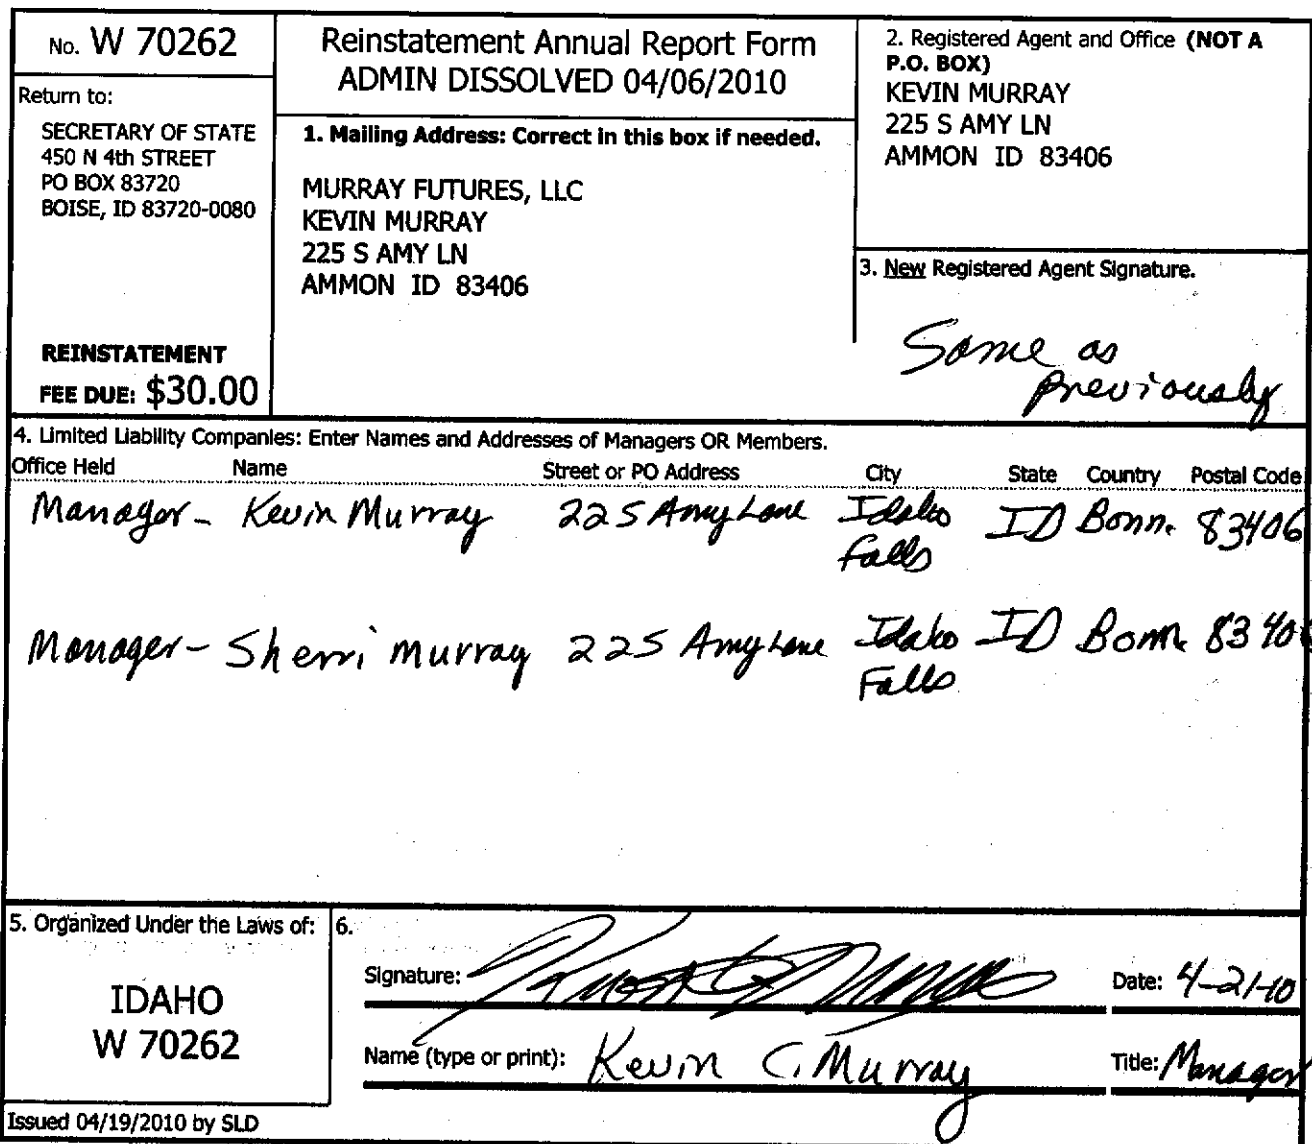 No. W 70262
Return to:
SECRETARY OF STATE
450 N 4th STREET
PO BOX 83720
BOISE, ID 83720-0080
REINSTATEMENT
FEE DUE: $30.00
Reinstatement Annual Report Form
ADMIN DISSOLVED 04/06/2010
1. Mailing Address: Correct in this box if needed.
MURRAY FUTURES, LLC
KEVIN MURRAY
225 S AMY LN
AMMON ID 83406
2. Registered Agent and Office (NOT A
P.O. BOX)
KEVIN MURRAY
225 S AMY LN
AMMON ID 83406
3. New Registered Agent Signature.
Same as
previously
4. Limited Liability Companies: Enter Names and Addresses of Managers OR Members.
Office Held Name Street or PO Address City State Country Postal Code
Manager - Kevin Murray 225 Amy Lane Idaho ID Bonn. 83406
Falls
Manager - Sherri Murray 225 Amy Lane Idaho ID Bonn. 8340
Falls
5. Organized Under the Laws of:
IDAHO
W 70262
6.
Signature: Date: 4-21-10
Name (type or print): Kevin C. Murray Title: Manager
Issued 04/19/2010 by SLD